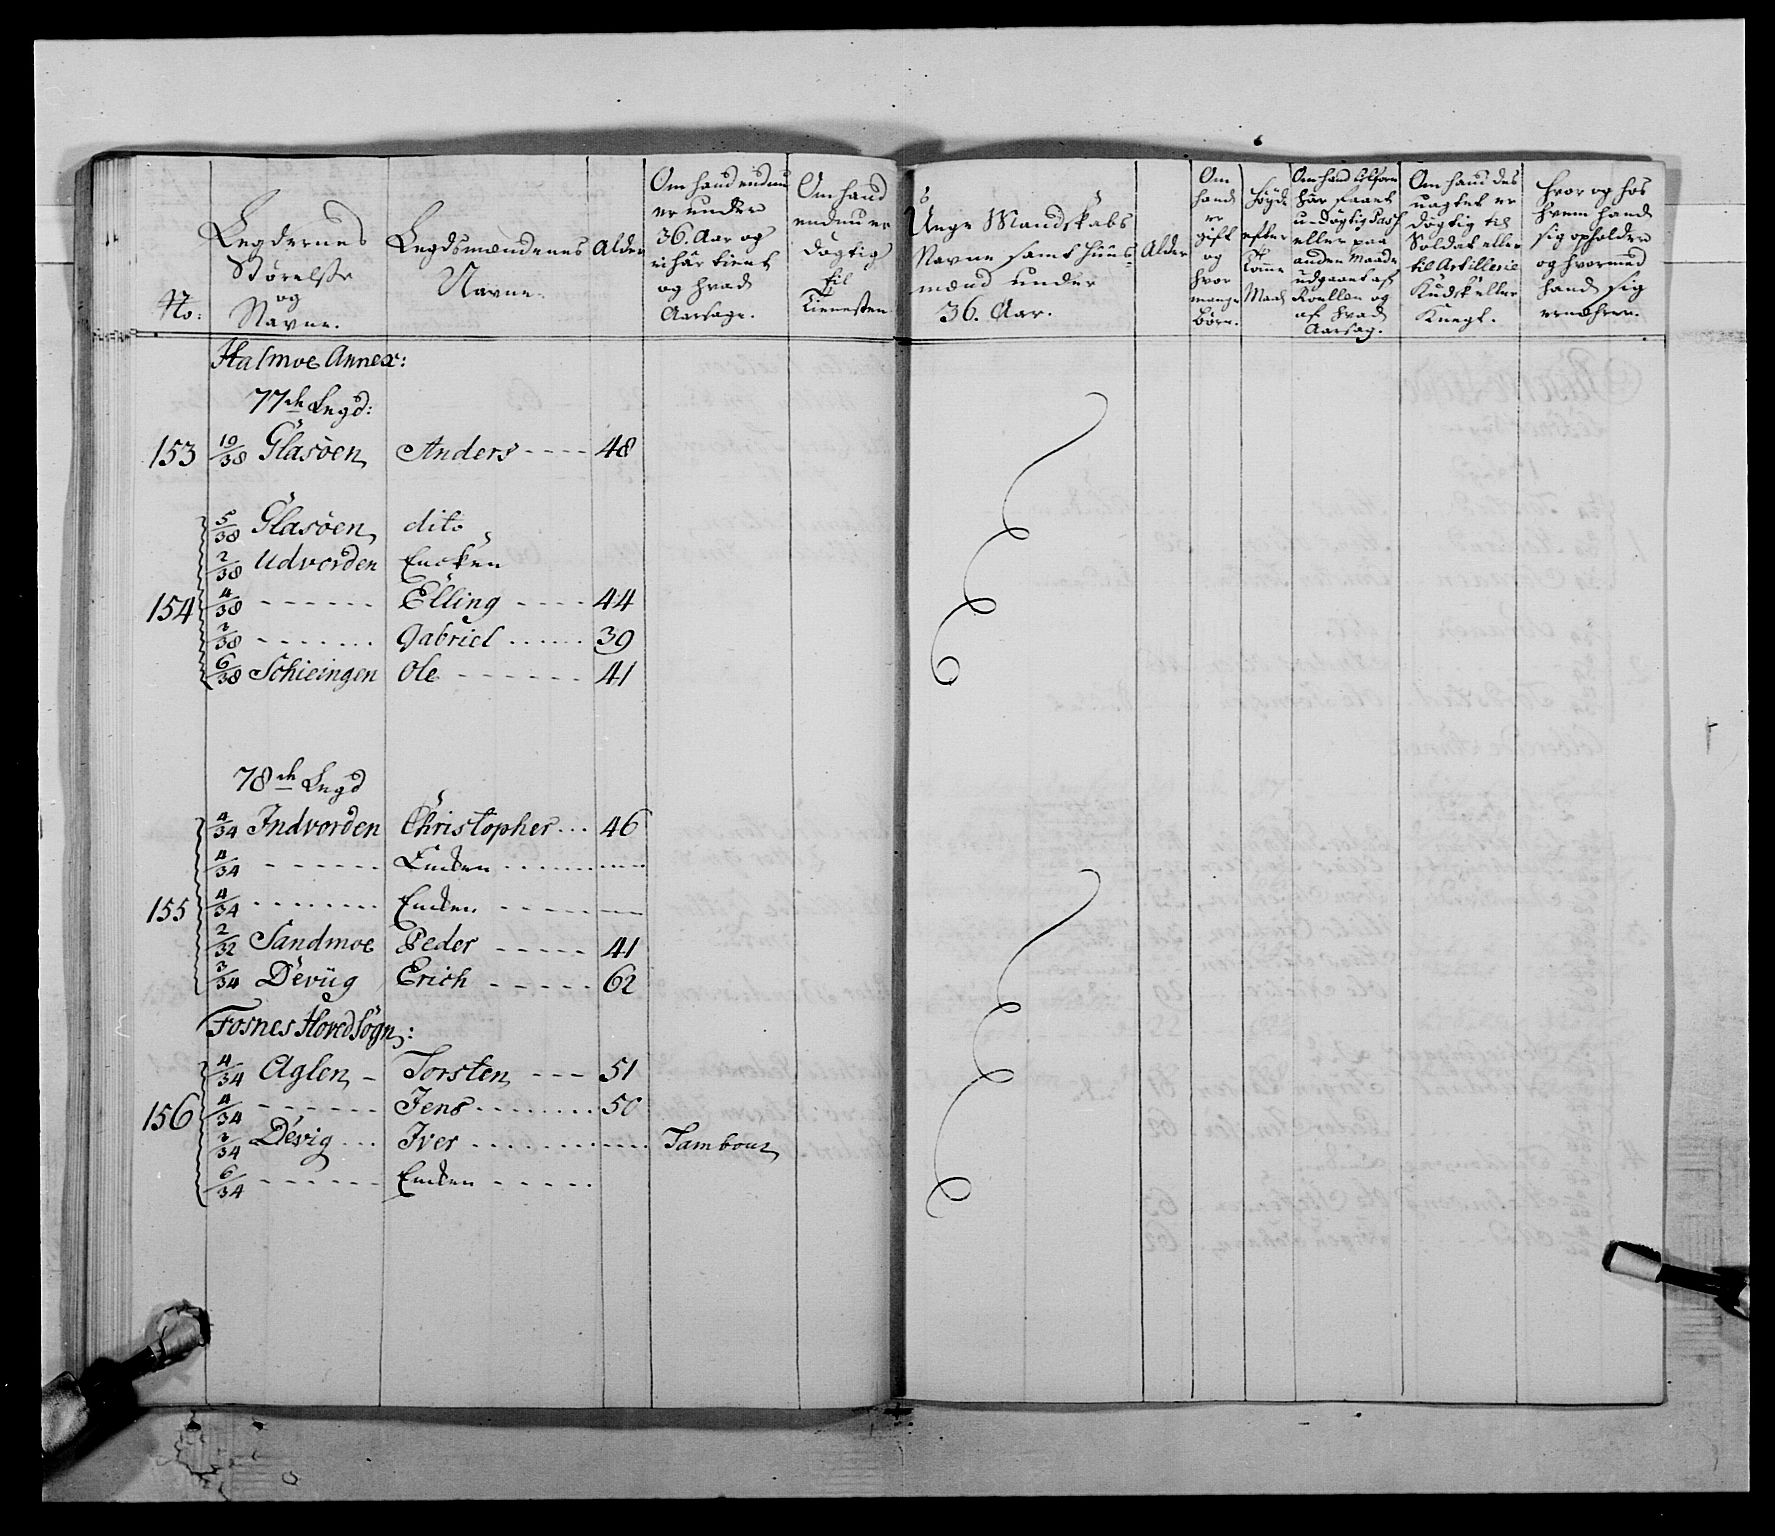 No:
Legdernes
Størelsse
og
Navne.
Legdsmændenes
Navne.
Alder
Om hand endnu
er under
36. Aar og
ei har tient
og hvad
Aarsage.
Om hand
endnu er
dögtig
til
Tienesten
Unge Mandskabs
Navne samt Huus-
mænd under
36. Aar.
Alder
Om
hand
er
gift
og
hvor
mange
Börn.
Höyde
efter
Maal
Om hand tilforn
har faaet
udögtig Pass
eller paa
anden Maade
udgaaet af
Roullen og
af hvad
Aarsag.
Om hand des
uagtet er
dögtig til
Soldat eller
til Artillerie
Kudsk eller
Knegt.
Hvor og hos
hvem hand
sig opholder
og hvormed
hand sig
ernærer.
Halmoe Annex:
77de Legd:
153 10/38 Glasöen Anders - - - - 48
5/38 Glasöen dito
2/38 Udvorden Encken
154 4/38 - - - - - - Elling - - - - 44
2/38 - - - - - - Gabriel - - - - - - 39
6/38 Schieingen Ole - - - - - - - 41
78de Legd
4/34 Indvorden Christopher - - - 46
4/34 - - - - - - Encken - - - - - -
155 4/34 - - - - - - Encken - - - - - -
2/32 Sandmoe Peder - - - - - 41
3/34 Devüg Erich - - - - - 62
Fosnes Hoved Sogn:
4/34 Aglen - Torsten - - - 51
156 4/34 - - - - - - Jens - - - - - - 50
2/34 Devig - - - Iver - - - - - - Tambour
6/34 - - - - - - Encken - - - - -